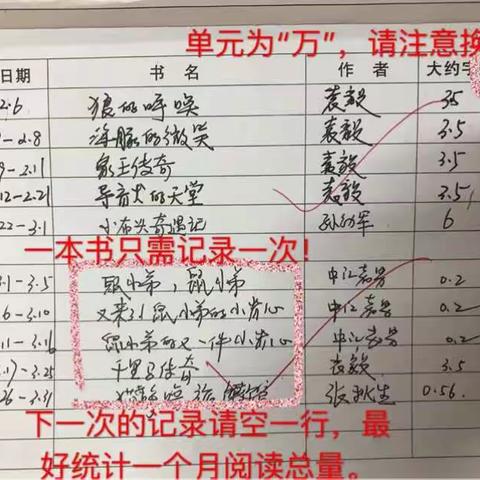 单元为“万”，请注意换
日期 书名 作者 大约字
2.6 狼的呼唤 袁毅 3.5
-2.8 海豚的微笑 袁毅 3.5
-2.11 象王传奇 袁毅 3.5
12-2.21 导盲犬的天堂 袁毅 3.5
22-3.1 小布头奇遇记 孙幼军 6
一本书只需记录一次！
3.1-3.5 鼠小弟，鼠小弟 中江嘉男 0.2
6-3.10 又来了！鼠小弟的小背心 中江嘉男 0.2
11-3.16 鼠小弟的又一件小背心 中江嘉男 0.2
17-3.25 千里 袁毅 3.5
26-3.31 张秋生 0.56
下一次的记录请空一行，最
好统计一个月阅读总量。